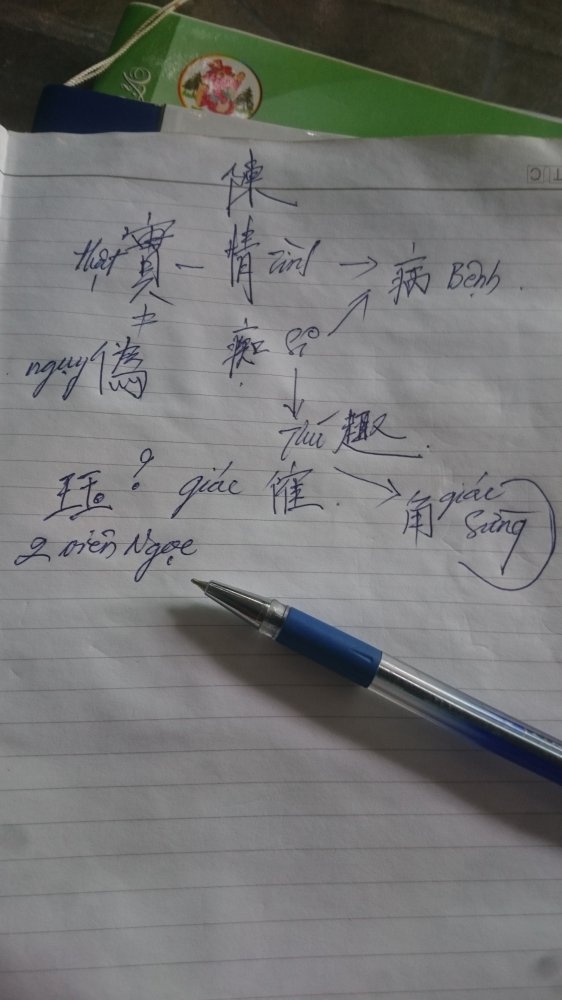 陳
thật 實 – 情 tình → 病 Bệnh.
≠
ngụy 偽 痴 Si
Thú 趣.
? giác 催. 角 giác Sừng
2 viên Ngọc